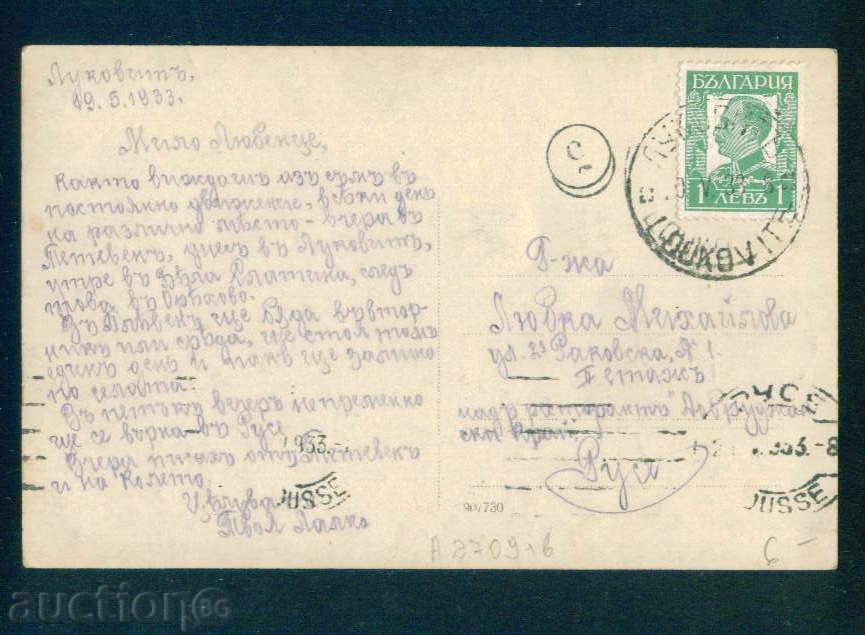 Луковитъ,
19.5.1933.
Мило Любенце,
както виждашъ азъ съмъ въ
постоянно движение, всѣки день
на различно мѣсто - вчера въ
Тетевенъ, днесъ въ Луковитъ,
утре въ Бѣла Слатина, следъ
това въ Орѣхово.
Въ Плѣвенъ ще бѫда въ втор-
никъ или срѣда, ще стоя тамъ
единъ день и пакъ ще замина
по селата.
Въ петъкъ вечеръ непременно
ще се върна въ Русе
Вчера писахъ отъ Тетевенъ
и на Колето.
Цѣлува
Твоя
БЪЛГАРИЯ
1 ЛЕВЪ 1
ЛУКОВИТЪ
С
Г-жа
Любка Михайлова
ул. Раковска, № 1
II етажъ
надъ ресторантъ
Русе
1933.-
RUSSE
РУСЕ
1933.-8
RUSSE
90/730
А 27091б
6-
auctionBG